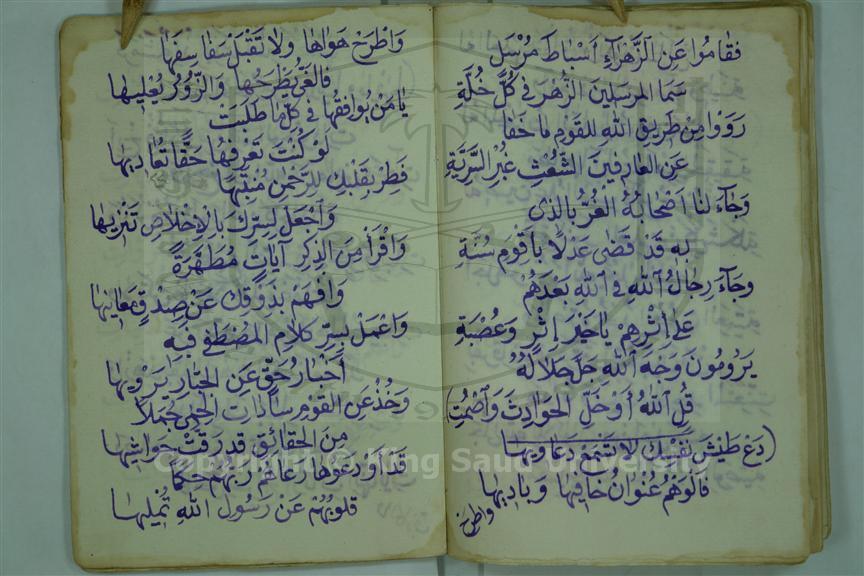 فقاموا عن الزهراء أسباط مرسل
سما المرسلين الزهر في كل خلة
رووا من طريق الله للقوم ما خفا
عن العارفين الشعث غبر السرية
وجاء لنا أصحابه الغر بالذي
به قد قضى عدلا بأقوم سنة
وجاء رجال الله في الله بعدهم
على إثرهم يا خير إثر وعصبة
يرومون وجه الله جل جلاله
قل الله أو خل الحوادث واصمت
دع طيش نفسك لا تسمع دعاويها
فالوهم عنوان خافيها وباديها
واطرح
واطرح هواها ولا تقبل سفاسفها
فالغي يطرحها والزور يعليها
يا من يوافقها في كل ما طلبت
لو كنت تعرفها حقا تعاديها
فطر بقلبك للرحمن منتبها
واجعل لسرك بالإخلاص تنزيها
واقرأ من الذكر آيات مطهرة
وافهم بذوقك عن صدق معانيها
واعمل بسر كلام المصطفى فبه
أخبار حق عن الجبار يرويها
وخذ عن القوم سادات الحمى جملا
من الحقائق قد رقت حواشيها
قد أودعوها رعاهم ربهم حكما
قلوبهم عن رسول الله تمليها
Copyright © King Saud University